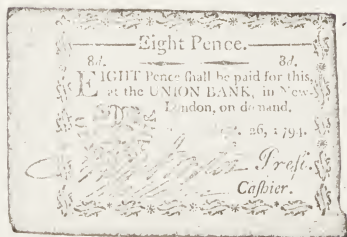 Eight Pence.
8d. 8d.
EIGHT Pence ſhall be paid for this,
at the UNION BANK, in New-
London, on demand.
26, 1794.
Preſi.
Caſhier.